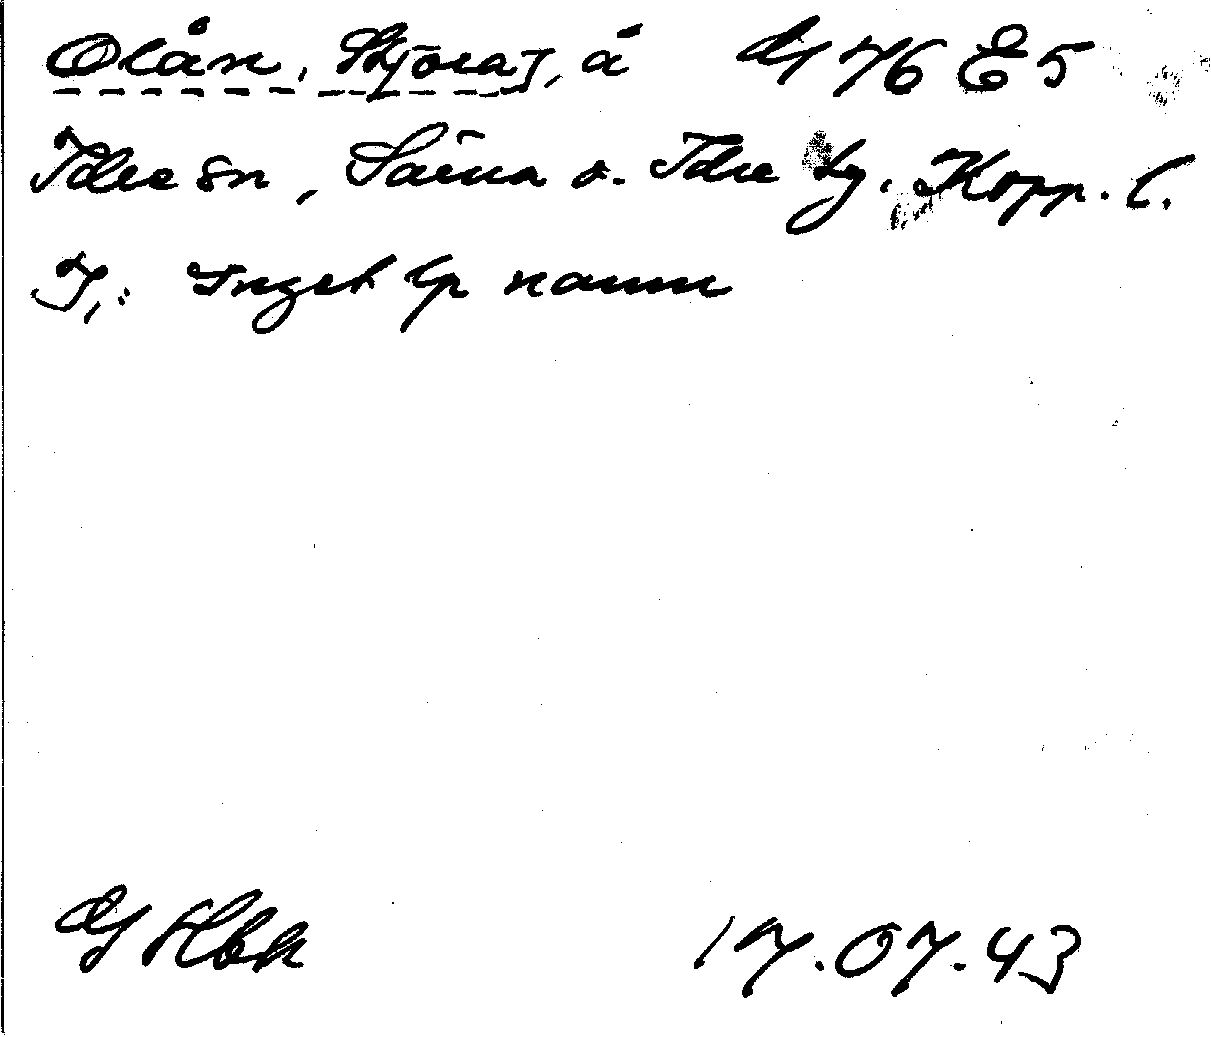 Olån, Stjöra], å dg 76 E 5
Idre sn, Särna o. Idre tg. Kopp. l.
I,: Inget lp namn
dg Hbk
17.07.43